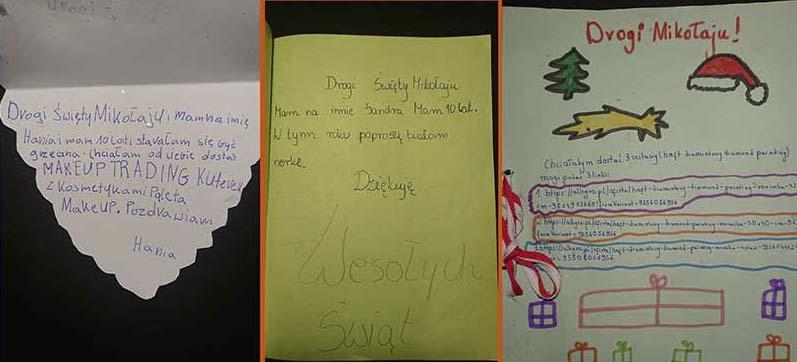 Drogi Święty Mikołaju, Mam na imię
Hania i mam 10 lat, starałam się być
grzeczna. Chciałam od ciebie dostać
MAKEUP TRADING Kuferek
z Kosmetykami Paleta
MakeUP. Pozdrawiam
Hania
Drogi Święty Mikołaju
Mam na imie Sandra Mam 10 lat.
W tym roku poproszę białom
norkę.
Dziękuję
Wesołych
Świąt
Drogi Mikołaju!
Chciałabym dostać 3 zestawy (haft diamentowy diamond painting)
mogę podać 3 linki:
1. https://allegro.pl/oferta/haft-diamentowy-diamond-painting-mozaika
2. https://allegro.pl/oferta/haft-diamentowy-diamond-painting-mozaika-30x40-cm
3. https://allegro.pl/oferta/haft-diamentowy-diamond-painting-mozaika